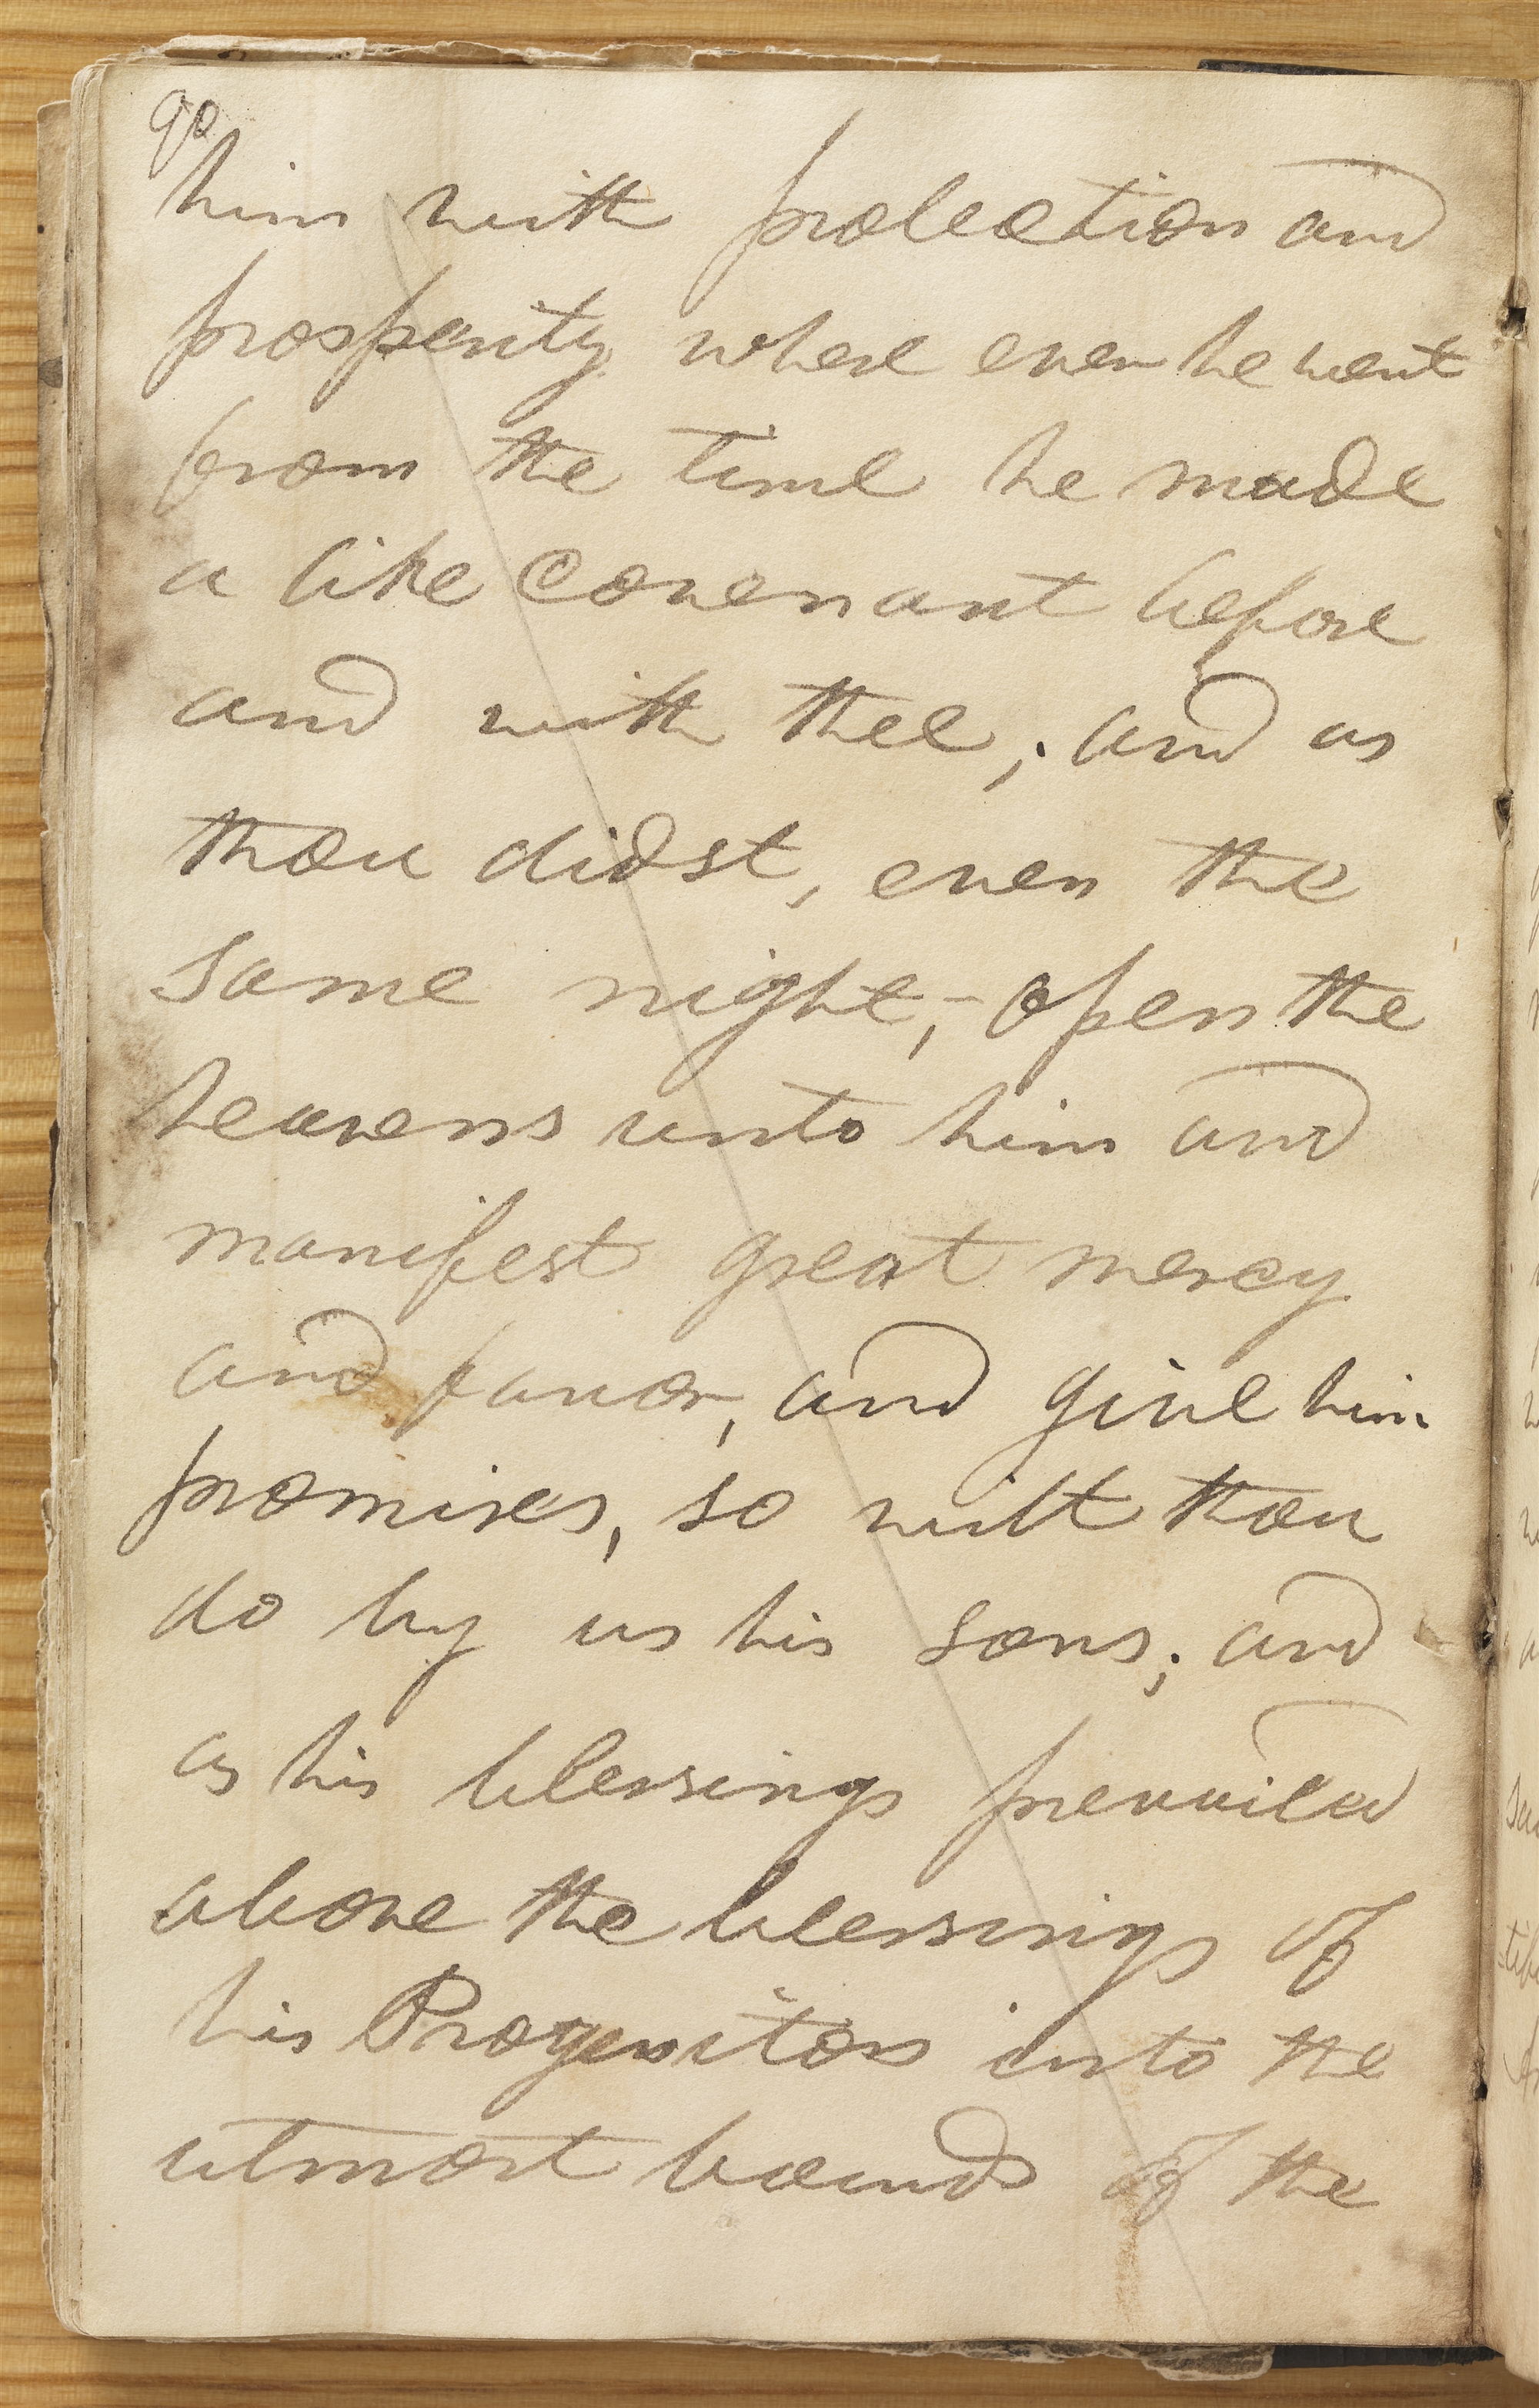 90
him with protection and
prosperity where ever he went
from the time he made
a like Covenant before
and with thee; and as
thou didst, even the
same night, – open the
heavens unto him and
manifest great mercy
and favor, and give him
promises, so wilt thou
do by us his sons; and
as his blessings prevailed
above the blessings of
his Progenitors into the
utmost bounds of the